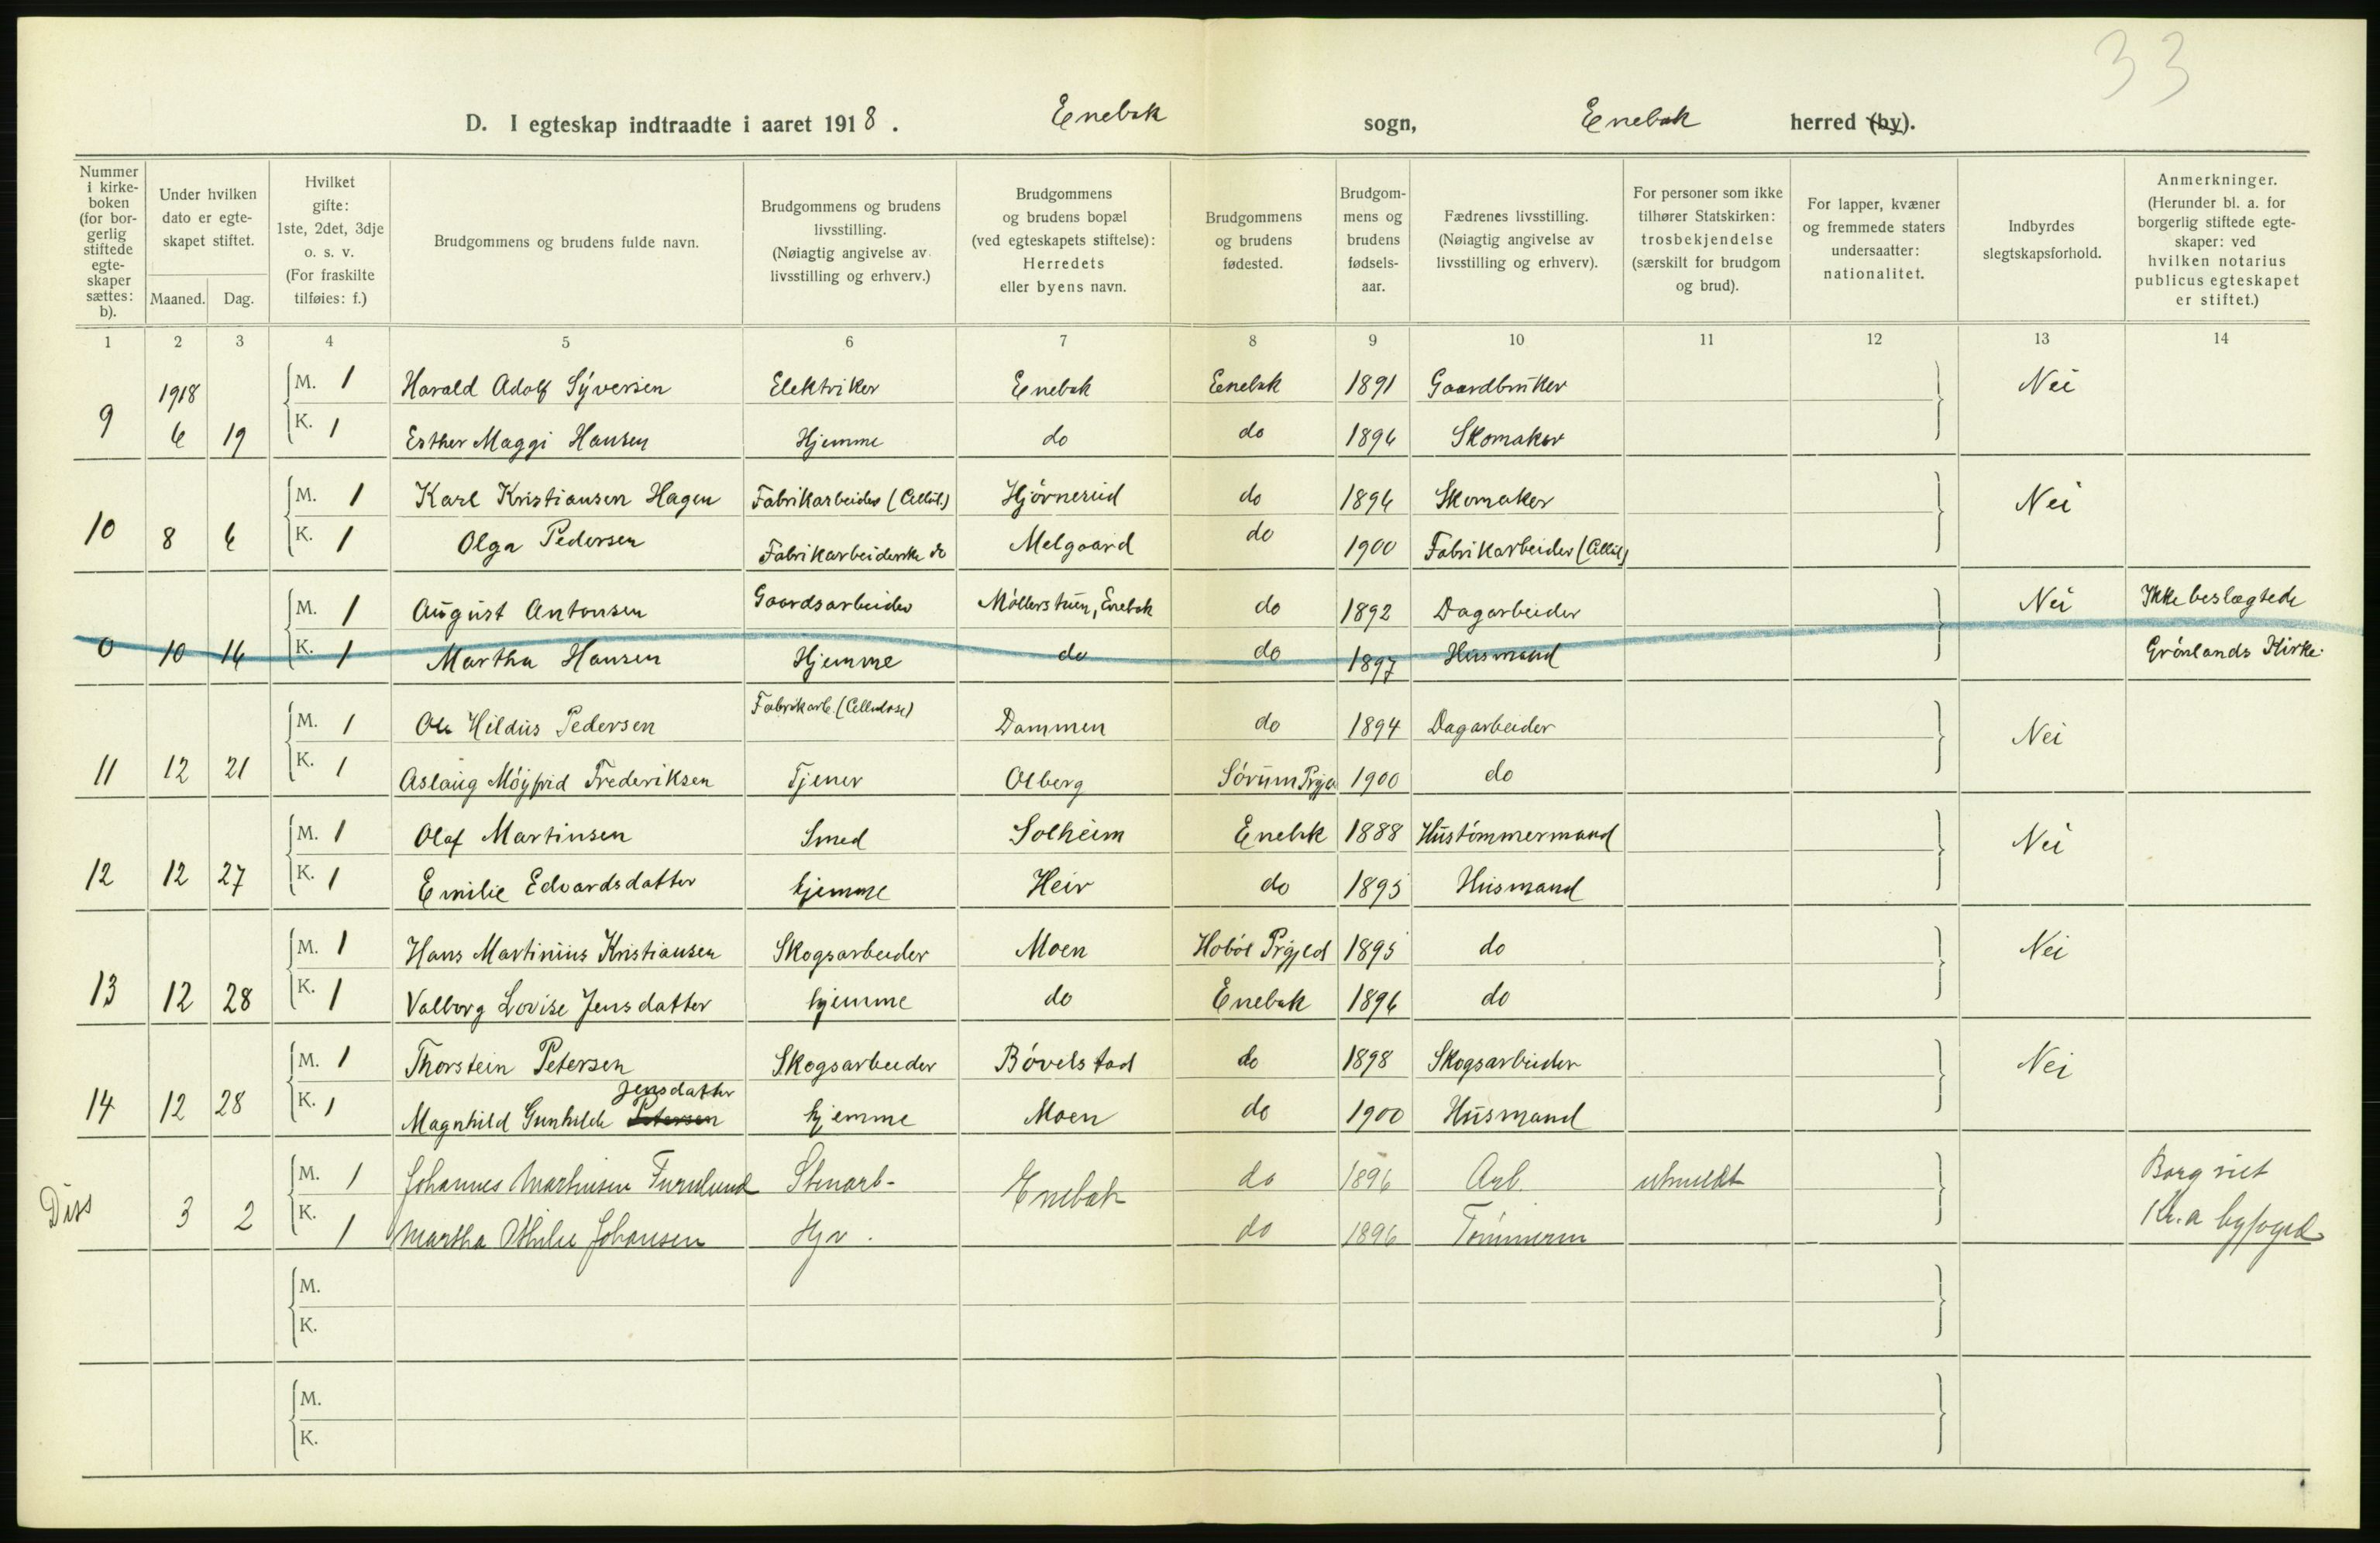 33
D. I egteskap indtraadte i aaret 1918. Enebak sogn, Enebak herred (by).
Nummer i kirkeboken (for borgerlig stiftede egteskaper sættes: b).
Under hvilken dato er egteskapet stiftet.
Maaned. Dag.
Hvilket gifte: 1ste, 2det, 3dje o. s. v. (For fraskilte tilføies: f.)
Brudgommens og brudens fulde navn.
Brudgommens og brudens livsstilling. (Nøiagtig angivelse av livsstilling og erhverv.)
Brudgommens og brudens bopæl (ved egteskapets stiftelse): Herredets eller byens navn.
Brudgommens og brudens fødested.
Brudgommens og brudens fødselsaar.
Fædrenes livsstilling. (Nøiagtig angivelse av livsstilling og erhverv).
For personer som ikke tilhører Statskirken: trosbekjendelse (særskilt for brudgom og brud).
For lapper, kvæner og fremmede staters undersaatter: nationalitet.
Indbyrdes slegtskapsforhold.
Anmerkninger. (Herunder bl. a. for borgerlig stiftede egteskaper: ved hvilken notarius publicus egteskapet er stiftet.)
1 2 3 4 5 6 7 8 9 10 11 12 13 14
1918 M. 1 Harald Adolf Syversen Elektriker Enebak Enebak 1891 Gaardbruker Nei
9 6 19 K. 1 Esther Maggi Hansen Hjemme do do 1896 Skomaker
M. 1 Karl Kristiansen Hagen Fabrikarbeider (Cellul.) Hjørnerud do 1896 Skomaker Nei
10 8 6 K. 1 Olga Pedersen Fabrikarbeiderske do Melgaard do 1900 Fabrikarbeider (Cellul)
M. 1 August Antonsen Gaardsarbeider Møllerstuen, Enebak do 1892 Dagarbeider Nei Ikke beslægtede
0 10 14 K. 1 Martha Hansen Hjemme do do 1897 Husmand Grønlands Kirke.
M. 1 Ole Hildus Pedersen Fabrikarb. (Cellulose) Dammen do 1894 Dagarbeider Nei
11 12 21 K. 1 Aslaug Møyfrid Frederiksen Tjener Olberg Sørum Prgjeld 1900 do
M. 1 Olaf Martinsen Smed Solheim Enebak 1888 Hustømmermand Nei
12 12 27 K. 1 Emilie Edvardsdatter hjemme Heir do 1895 Husmand
M. 1 Hans Martinius Kristiansen Skogsarbeider Moen Hobøl Prgjeld 1895 do Nei
13 12 28 K. 1 Valborg Lovise Jensdatter hjemme do Enebak 1896 do
M. 1 Thorstein Petersen Skogsarbeider Bøvelstad do 1898 Skogsarbeider Nei
Jensdatter
14 12 28 K. 1 Magnhild Gunhilde Petersen hjemme Moen do 1900 Husmand
Diss M. 1 Johannes Martinsen Furulund Stenarb. Enebak do 1896 Arb. utmeldt Borg viet
3 2 K. 1 Martha Othilie Johansen Hjv. do 1896 Tømmerm Kr.a byfoged
M.
K.
M.
K.